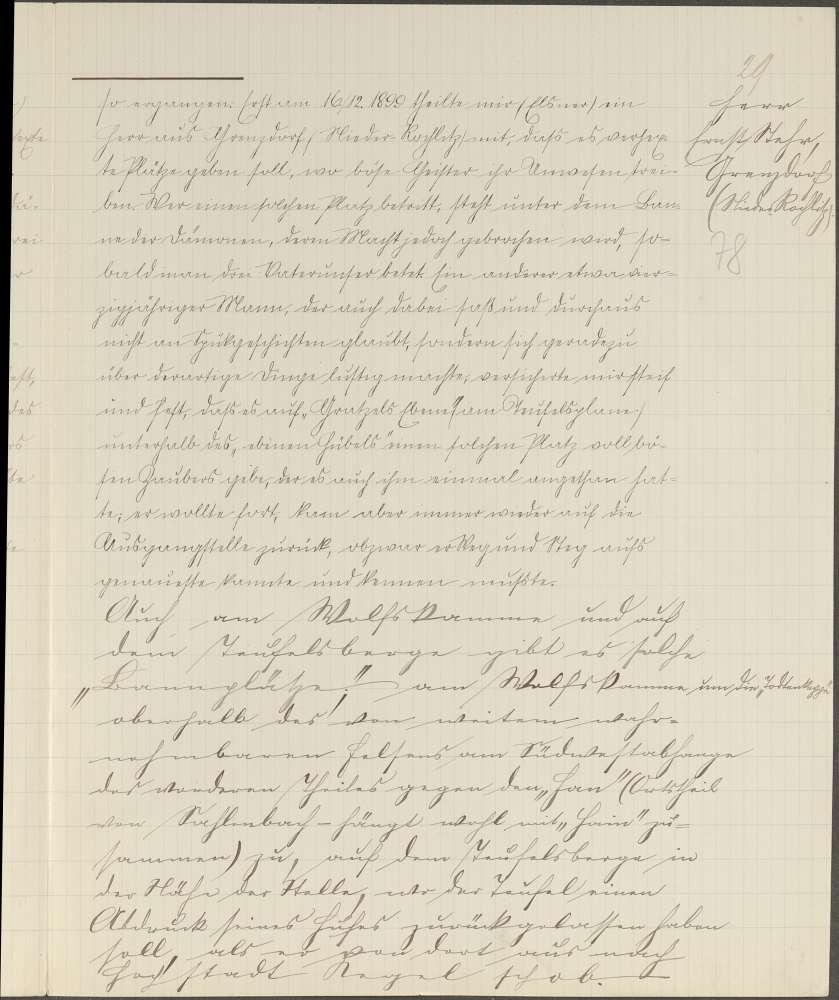 29
so ergangen. Erst am 16/12. 1899 theilte mir (Elsner) ein
Herr aus Grenzdorf (Nieder-Rochlitz) mit, dass es verhex-
te Plätze geben soll, wo böse Geister ihr Unwesen trei-
ben. Wer einen solchen Platz betritt, steht unter dem Ban-
ne der Dämonen, deren Macht jedoch gebrochen wird, so-
bald man drei Vaterunser betet. Ein anderer, etwa vier-
zigjähriger Mann, der auch dabei saß und durchaus
nicht an Spukgeschichten glaubt, sondern sich geradezu
über derartige Dinge lustig machte, versicherte mir steif
und fest, dass es auf „Gratzels Ebene" (am Teufelsplane)
unterhalb des „ebenen Hübels" einen solchen Platz voll bö-
sen Zaubers gebe, der es auch ihm einmal angethan hat-
te; er wollte fort, kam aber immer wieder auf die
Ausgangstelle zurück, obzwar er Weg und Steg aufs
genaueste kannte und kennen mußte.
Herr
Ernst Stehr,
Grenzdorf
(Nieder Rochlitz).
78
Auch am Wolfskamme und auf
dem Teufelsberge gibt es solche
„Bannplätze!" am Wolfskamme um die
oberhalb des von weitem wahr-
nehmbaren Felsens am Südwestabhange
des vorderen Theiles gegen den „Han" (Ortstheil
von Sahlenbach – hängt wohl mit „Hain" zu-
sammen) zu, auf dem Teufelsberge in
der Nähe der Stelle, wo der Teufel einen
Abdruck seines Hufes zurückgelassen haben
soll, als er von dort aus nach
Hochstadt Kegel schob.